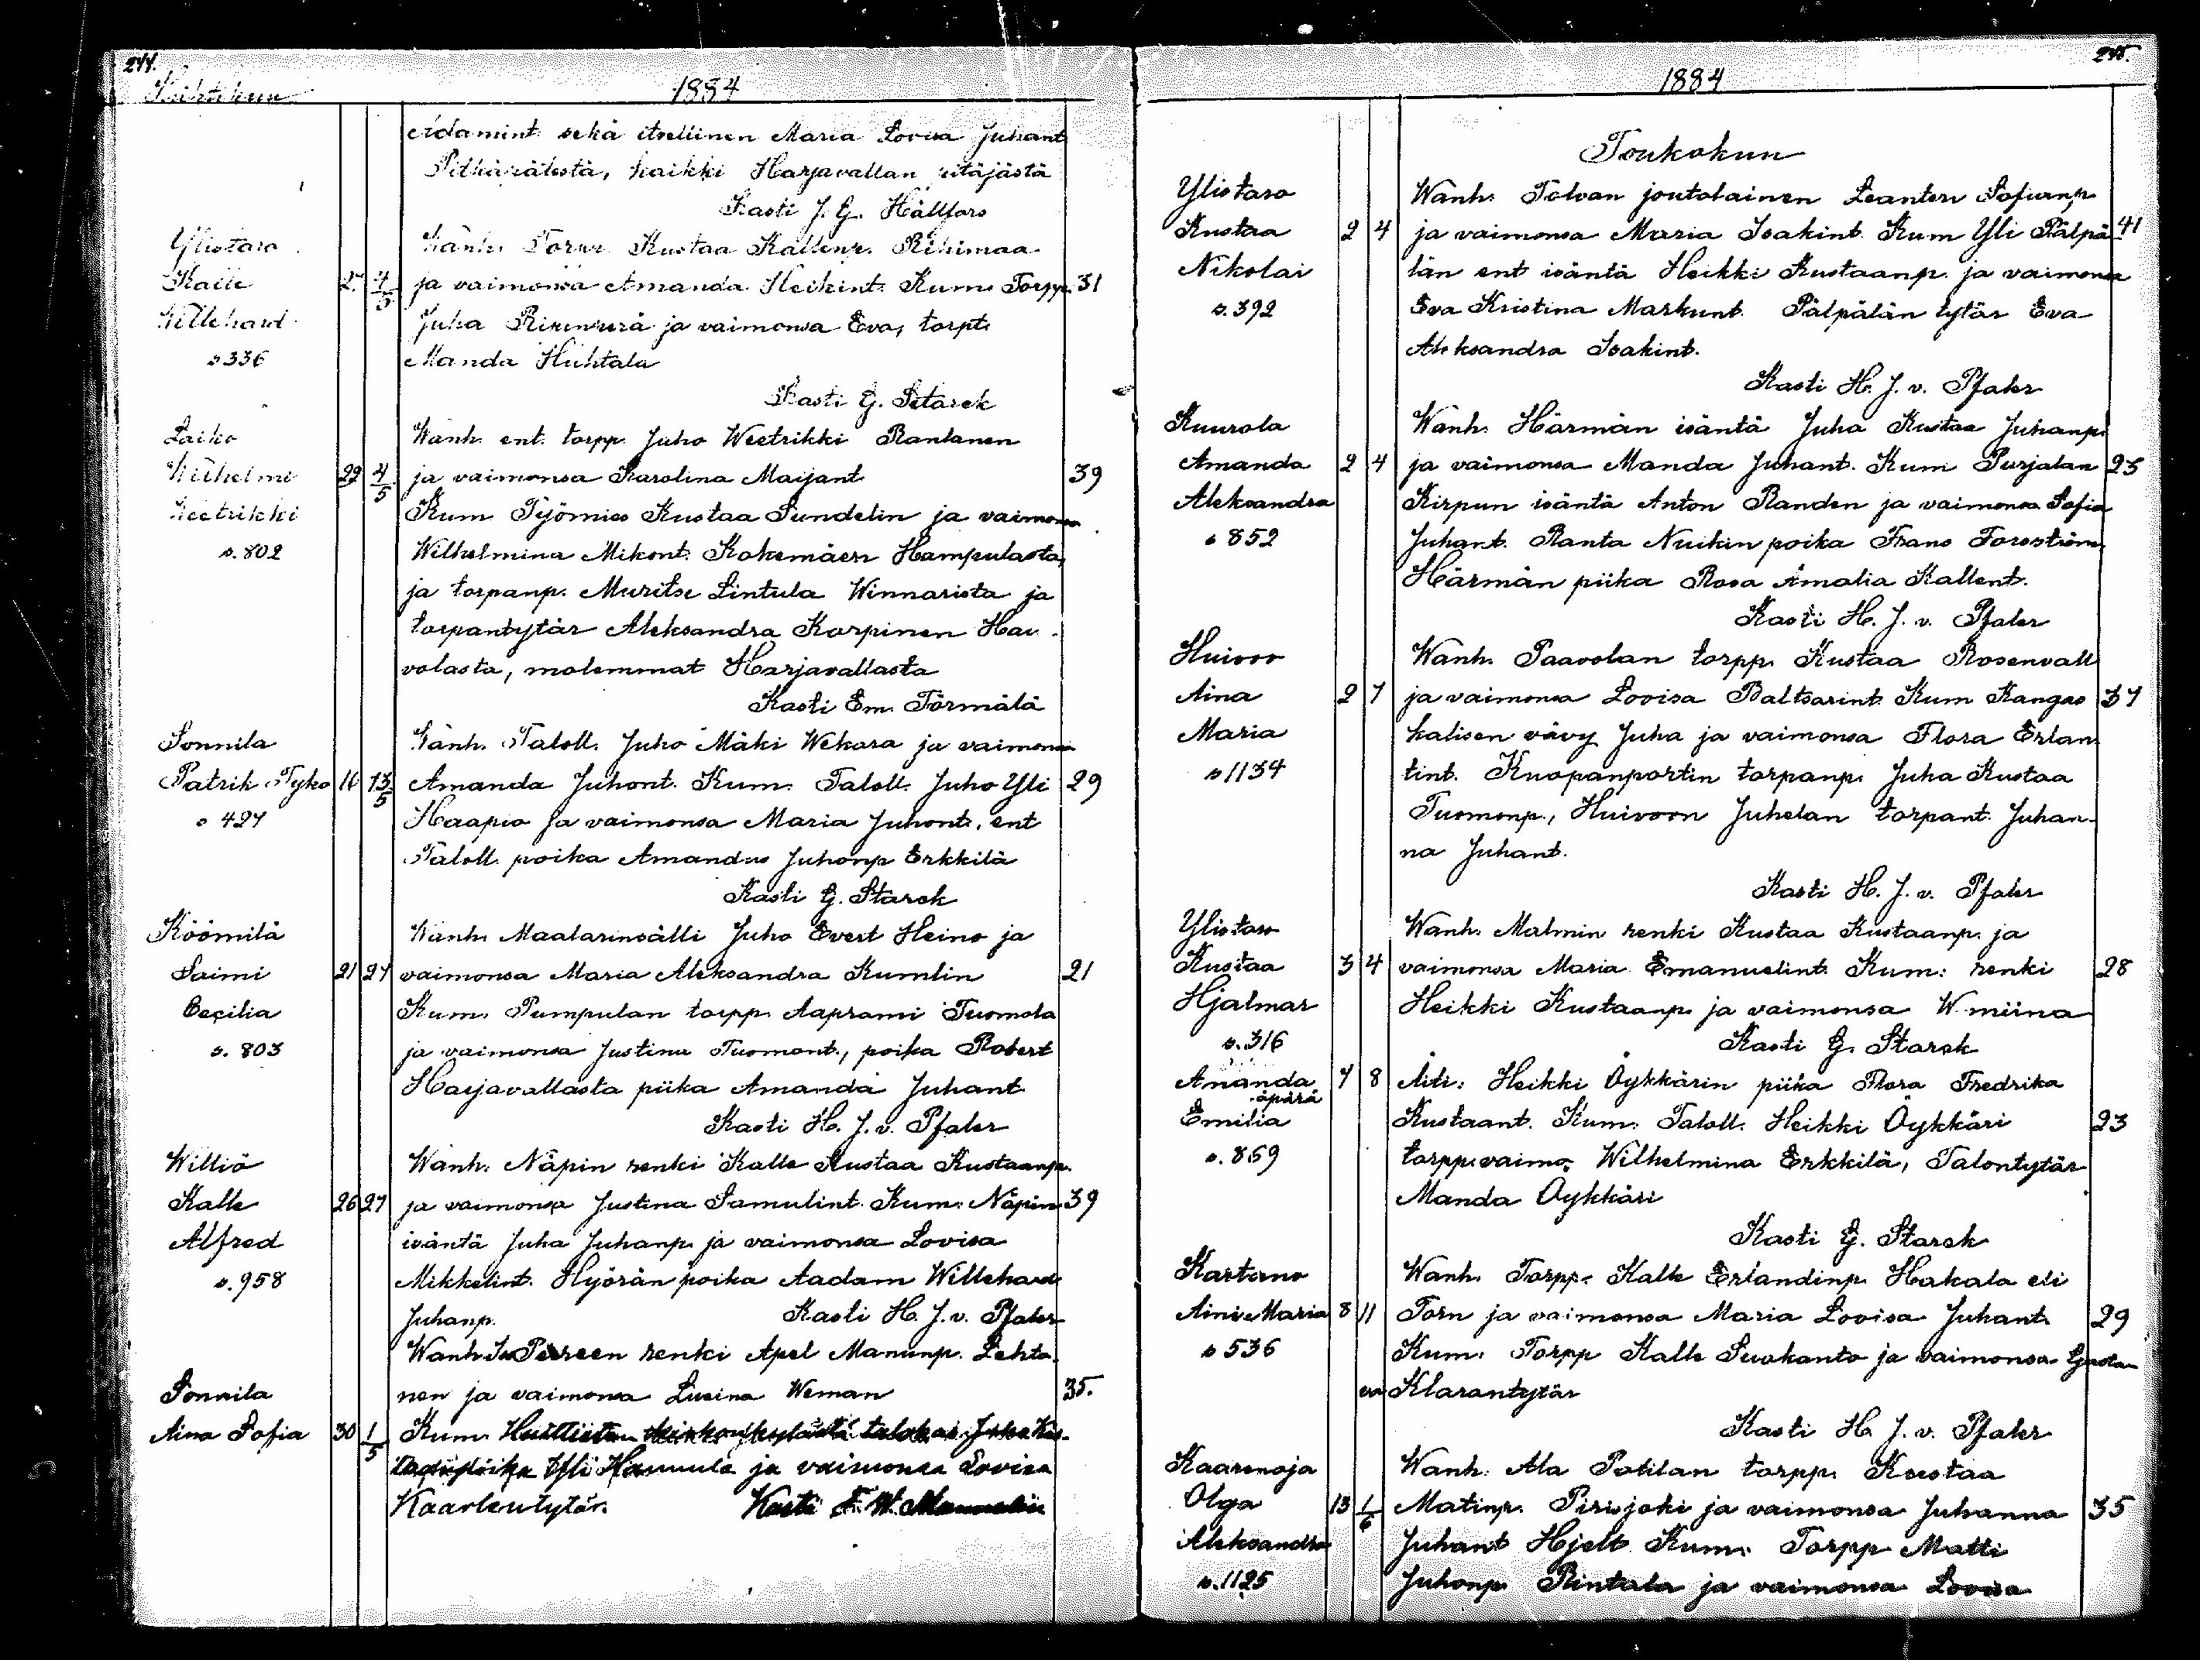 244.
Huhtikuu
1884
Aidamint. sekä itsellinen Maria Lovisa Juhant
Pitkäpäästä, kaikki Harjavallan pitäjästä
Kasti J. G. Hällfors
Ylistaro
Wanh. Torpp. Kustaa Kallenp. Riihimaa
Kalle
27 4/5 ja vaimonsa Amanda Heikint. Kum. Torpp. 31
Willehard
Juha ja vaimonsa Eva, torpt.
s 336
Manda Huhtala
Kasti G. Starck
Laiko
Wanh. ent. torpp. Juho Weetrikki Rantanen
Wilhelmi 29 4/5 ja vaimonsa Karolina Maijant 39
Weetrikki
Kum Työmies Kustaa Sundelin ja vaimonsa
s. 802
Wilhelmina Mikont. Kokemäen Hampulasta,
ja torpanp. Muritse Lintula Winnarista ja
torpantytär Aleksandra Korpinen Hav-
volasta, molemmat Harjavallasta
Kasti Em. Törmälä
Sonnila
Wanh. Taloll. Juho Mäki Wekara ja vaimonsa
Patrik Tyko 16 13/5 Amanda Juhont. Kum. Taloll. Juho Yli 29
s 427
Haapio ja vaimonsa Maria Juhont., ent
Taloll. poika Amandus Juhonp Erkkilä
Kasti G. Starck
Köömilä
Wanh. Maalarinsälli Juho Evert Heino ja
Saimi 21 27 vaimonsa Maria Aleksandra Kumlin 21
Cecilia
Kum. Pumpulan torpp. Aaprami Tuomola
s. 803
ja vaimonsa Justina Tuomont., poika Robert
Harjavallasta piika Amanda Juhant
Kasti H. J. v. Pfaler
Williö
Wanh. Näpin renki Kalle Kustaa Kustaanp.
Kalle 26 27 ja vaimonsa Justina Samulint. Kum: Näpin 39
Alfred
isäntä Juha Juhanp. ja vaimonsa Lovisa
s. 958
Mikkelint. Hyörän poika Aadam Willehard
Juhanp. Kasti H. J. v. Pfaler
Wanh. renki Apel Manunp. Lehto-
Sonnila
nen ja vaimonsa Lusina Weman 35.
Aina Sofia 30 1/5 Kum.
Yli Hannula ja vaimonsa Lovisa
Kaarlentytär. Kasti F. W.
245.
1884
Toukokuu
Ylistaro
Wanh. Tolvan joutolainen Leanter Sofianp
Kustaa 2 4 ja vaimonsa Maria Isakint. Kum Yli Pälpä- 41
Nikolai
län ent isäntä Heikki Kustaanp. ja vaimonsa
s. 392
Eva Kristina Markunt. Pälpälän tytär Eva
Aleksandra Isakint.
Kasti H. J. v. Pfaler
Kuurola
Wanh. Härmän isäntä Juha Kustaa Juhanp.
Amanda 2 4 ja vaimonsa Manda Juhant. Kum Purjalan 23
Aleksandra
Kirpun isäntä Anton Randen ja vaimonsa Sofia
s 852
Juhant. Ranta Nuikin poika Frans Forsström
Härmän piika Rosa Amalia Kallent.
Kasti H. J. v. Pfaler
Huivoo
Wanh. Paavolan torpp. Kustaa Rosenvall
Aina 2 7 ja vaimonsa Lovisa Baltsarint. Kum Kangas 37
Maria
kalisen vävy Juha ja vaimonsa Flora Erlan-
s 1134
tint. Knopanportin torpanp. Juha Kustaa
Tuomonp., Huivoon Juhelan torpant. Juhan-
na Juhant.
Kasti H. J. v. Pfaler
Ylistaro
Wanh. Malmin renki Kustaa Kustaanp. ja
Kustaa 3 4 vaimonsa Maria Emanuelint. Kum: renki 28
Hjalmar
Heikki Kustaanp. ja vaimonsa W. miina
s. 316
Kasti G. Starck
Amanda 7 8 Äiti: Heikki Öykkärin piika Flora Fredrika
äpärä
Emilia
Kustaant. Kum. Taloll. Heikki Öykkäri 23
s. 859
torpp.vaimo Wilhelmina Erkkilä, Talontytär
Manda Öykkäri
Kasti G. Starck
Karterno
Wanh. Torpp. Kalle Erlandinp. Hakala eli
Aini Maria 8 11 Torn ja vaimonsa Maria Lovisa Juhant. 29
s 536
Kum: Torpp Kalle Suokanto ja vaimonsa Gustaa-
va Klarantytär
Kasti H. J. v. Pfaler
Kaarenoja
Wanh. Ala Potilan torpp. Kustaa
Olga 13 1/6 Matinp. Pirisjoki ja vaimonsa Juhanna 35
Aleksandra
Juhant Hjelt. Kum. Torpp Matti
s. 1125
Juhonp. Rintala ja vaimonsa Lovisa